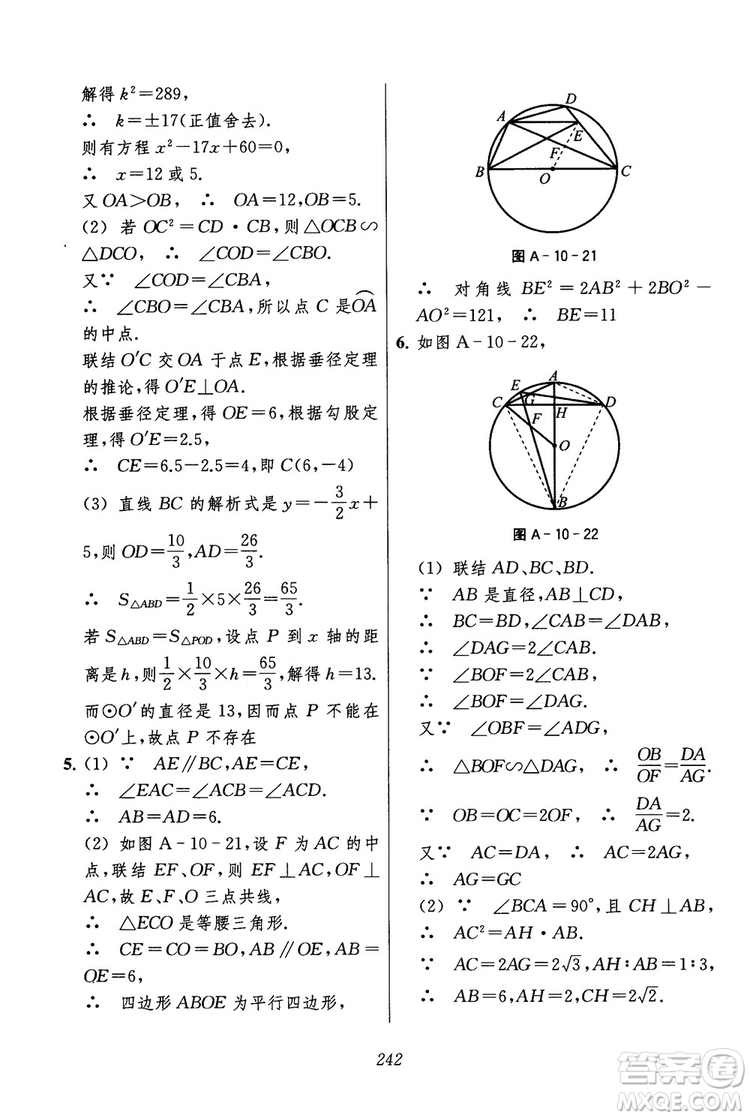 解得 k²=289,
∴ k=±17(正值舍去).
则有方程 x²-17x+60=0,
∴ x=12 或 5.
又 OA>OB, ∴ OA=12,OB=5.
(2) 若 OC²=CD·CB,则△OCB∽
△DCO, ∴ ∠COD=∠CBO.
又∵ ∠COD=∠CBA,
∴ ∠CBO=∠CBA,所以点 C 是⌒OA
的中点.
联结 O′C 交 OA 于点 E,根据垂径定理
的推论,得 O′E⊥OA.
根据垂径定理,得 OE=6,根据勾股定
理,得 O′E=2.5,
∴ CE=6.5-2.5=4,即 C(6,-4)
(3) 直线 BC 的解析式是 y=-3/2x+
5,则 OD=10/3,AD=26/3.
∴ S△ABD=1/2×5×26/3=65/3.
若 S△ABD=S△POD,设点 P 到 x 轴的距
离是 h,则1/2×10/3×h=65/3,解得 h=13.
而⊙O′的直径是 13,因而点 P 不能在
⊙O′上,故点 P 不存在
5. (1) ∵ AE∥BC,AE=CE,
∴ ∠EAC=∠ACB=∠ACD.
∴ AB=AD=6.
(2) 如图 A-10-21,设 F 为 AC 的中
点,联结 EF、OF,则 EF⊥AC,OF⊥
AC,故 E、F、O 三点共线,
∴ △ECO 是等腰三角形.
∴ CE=CO=BO,AB∥OE,AB=
OE=6,
∴ 四边形 ABOE 为平行四边形,
D
A
E
F
B
O
C
图 A-10-21
∴ 对角线 BE²=2AB²+2BO²-
AO²=121, ∴ BE=11
6. 如图 A-10-22,
A
E
G
C
F
H
D
O
B
图 A-10-22
(1) 联结 AD、BC、BD.
∵ AB 是直径,AB⊥CD,
∴ BC=BD,∠CAB=∠DAB,
∴ ∠DAG=2∠CAB.
∵ ∠BOF=2∠CAB,
∴ ∠BOF=∠DAG.
又∵ ∠OBF=∠ADG,
∴ △BOF∽△DAG, ∴ OB/OF=DA/AG.
∵ OB=OC=2OF, ∴ DA/AG=2.
又∵ AC=DA, ∴ AC=2AG,
∴ AG=GC
(2) ∵ ∠BCA=90°,且 CH⊥AB,
∴ AC²=AH·AB.
∵ AC=2AG=2√3,AH∶AB=1∶3,
∴ AB=6,AH=2, ∴ CH=2√2.
242
答案圈
MXQE.COM